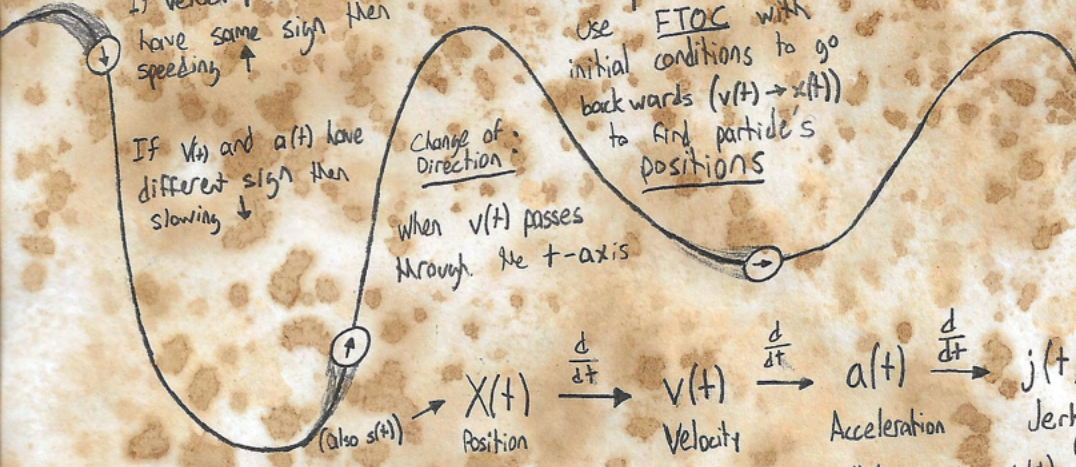 have same sign then
speeding ↑
If v(t) and a(t) have
different sign then
slowing ↓
Change of
Direction:
when v(t) passes
through the t-axis
use FTOC with
initial conditions to go
backwards (v(t) → x(t))
to find particle's
positions
(also s(t)) → X(t) d/dt → v(t) d/dt → a(t) d/dt → j(t
Position Velocity Acceleration Jerk